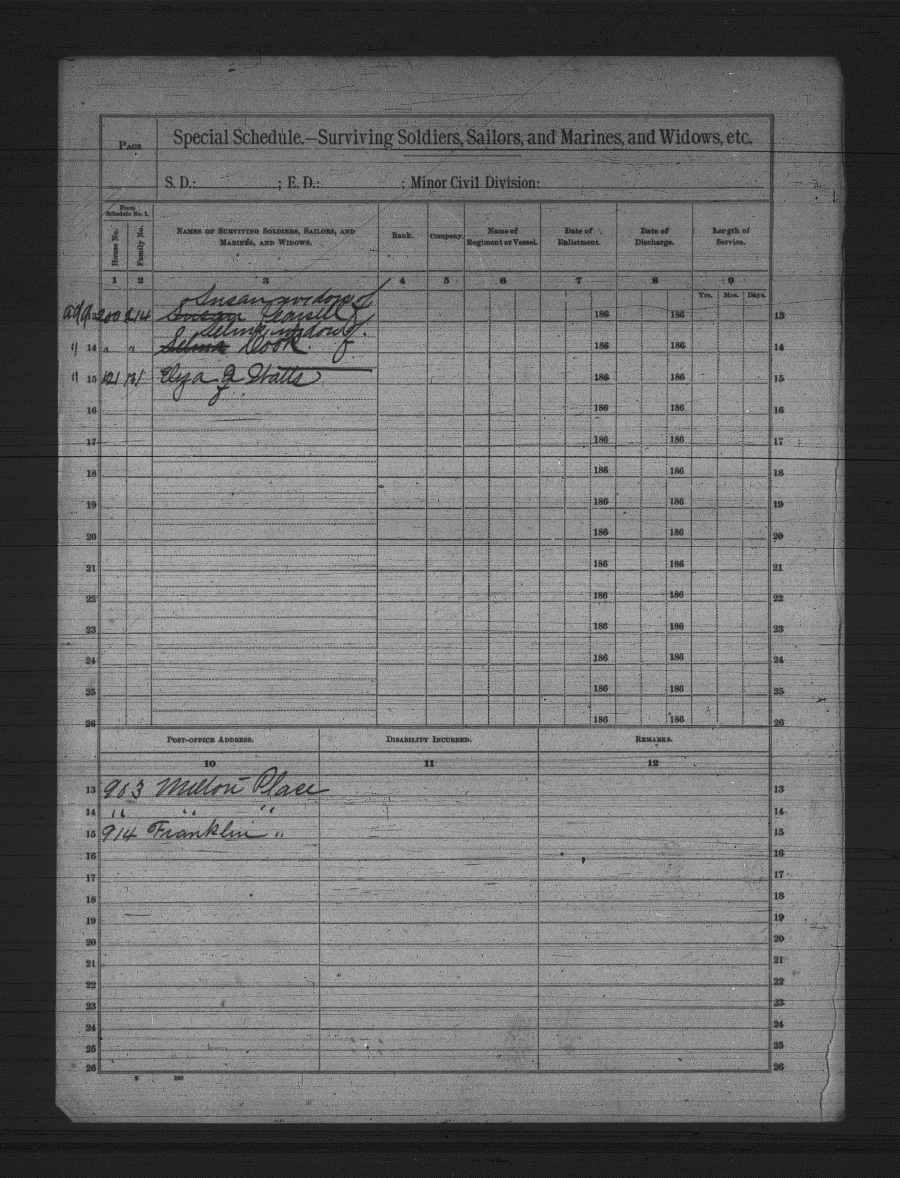 PAGE
Special Schedule.—Surviving Soldiers, Sailors, and Marines, and Widows, etc.
S. D.: ; E. D.: ; Minor Civil Division:
From Schedule No. 1.
House No. Family No. NAMES OF SURVIVING SOLDIERS, SAILORS, AND MARINES, AND WIDOWS. Rank. Company. Name of Regiment or Vessel. Date of Enlistment. Date of Discharge. Length of Service.
1 2 3 4 5 6 7 8 9
Yrs. Mos. Days.
Susan widow of
200 214 Susan 186 186 13
widow of
" 14 " " Cook 186 186 14
" 15 121 131 Eliza Watts 186 186 15
16 186 186 16
17 186 186 17
18 186 186 18
19 186 186 19
20 186 186 20
21 186 186 21
22 186 186 22
23 186 186 23
24 186 186 24
25 186 186 25
26 186 186 26
POST-OFFICE ADDRESS. DISABILITY INCURRED. REMARKS.
10 11 12
13 903 Milton Place 13
14 " " " 14
15 914 Franklin " 15
16 16
17 17
18 18
19 19
20 20
21 21
22 22
23 23
24 24
25 25
26 26